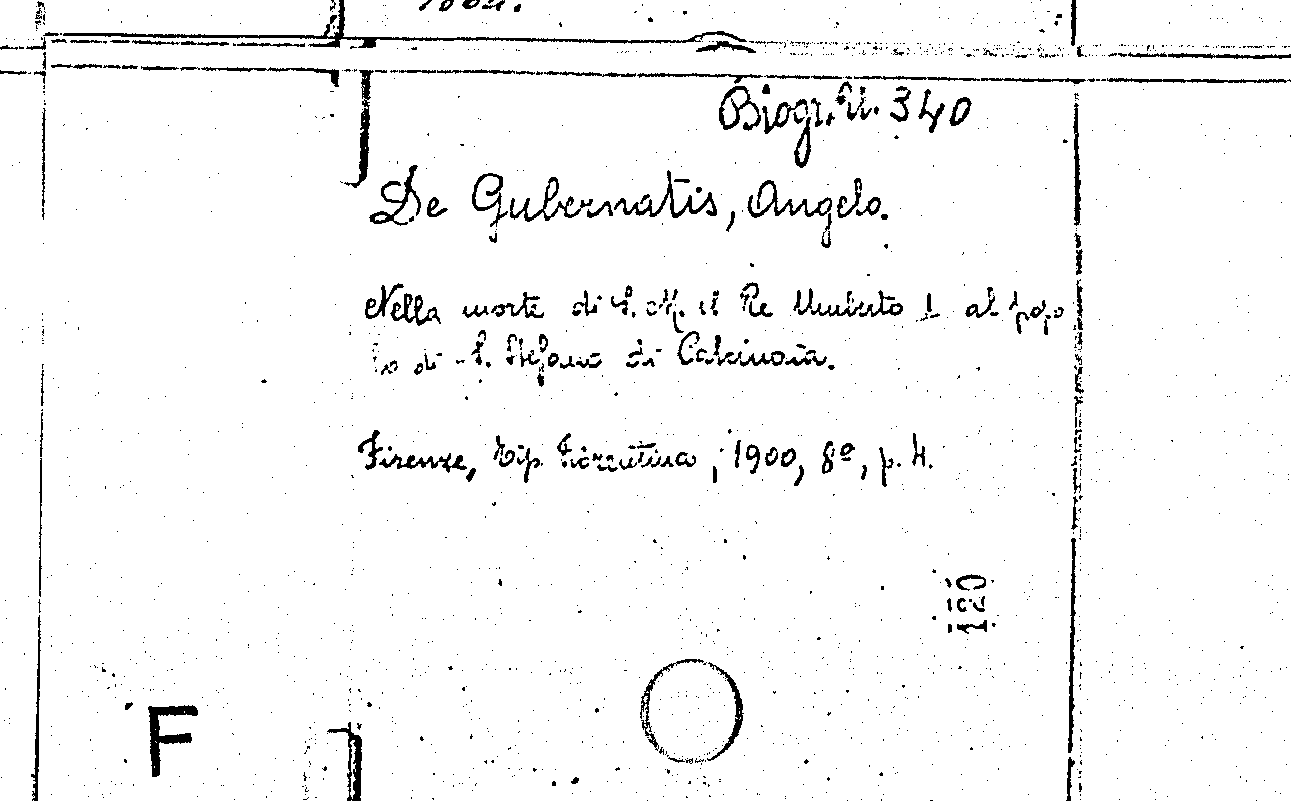 Biogr. U. 340
De Gubernatis, Angelo.
Nella morte di S. M. il Re Umberto I al popo
lo di S. Stefano di Calcinaia.
Firenze, Tip. Fiorentina, 1900, 8º, p. 4.
120
F